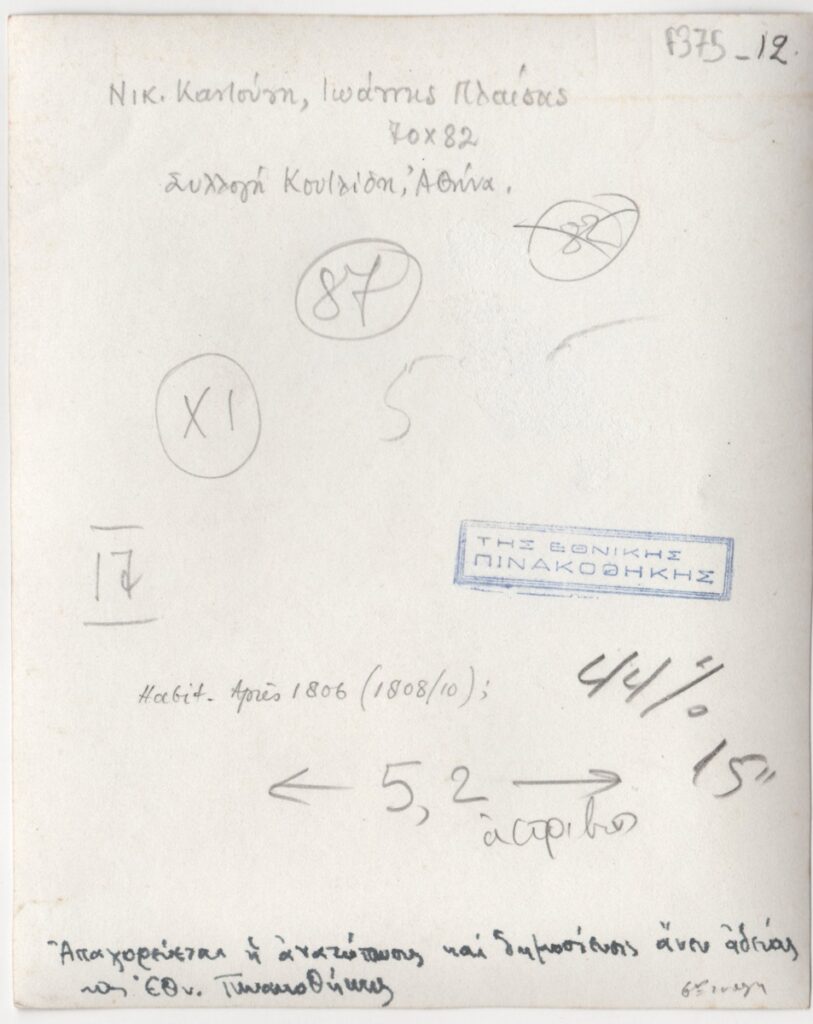 F375-12.
Νικ. Καντούνη, Ἰωάννης Πλαίσας
70x82
Συλλογή Κουτλίδη, Ἀθήνα.
82
87
XI
5
17
ΤΗΣ ΕΘΝΙΚΗΣ
ΠΙΝΑΚΟΘΗΚΗΣ
Après 1806 (1808/10);
44%
15"
← 5,2 →
ἀκριβῶς
Ἀπαγορεύεται ἡ ἀνατύπωσις καὶ δημοσίευσις ἄνευ ἀδείας
τῆς Ἐθν. Πινακοθήκης